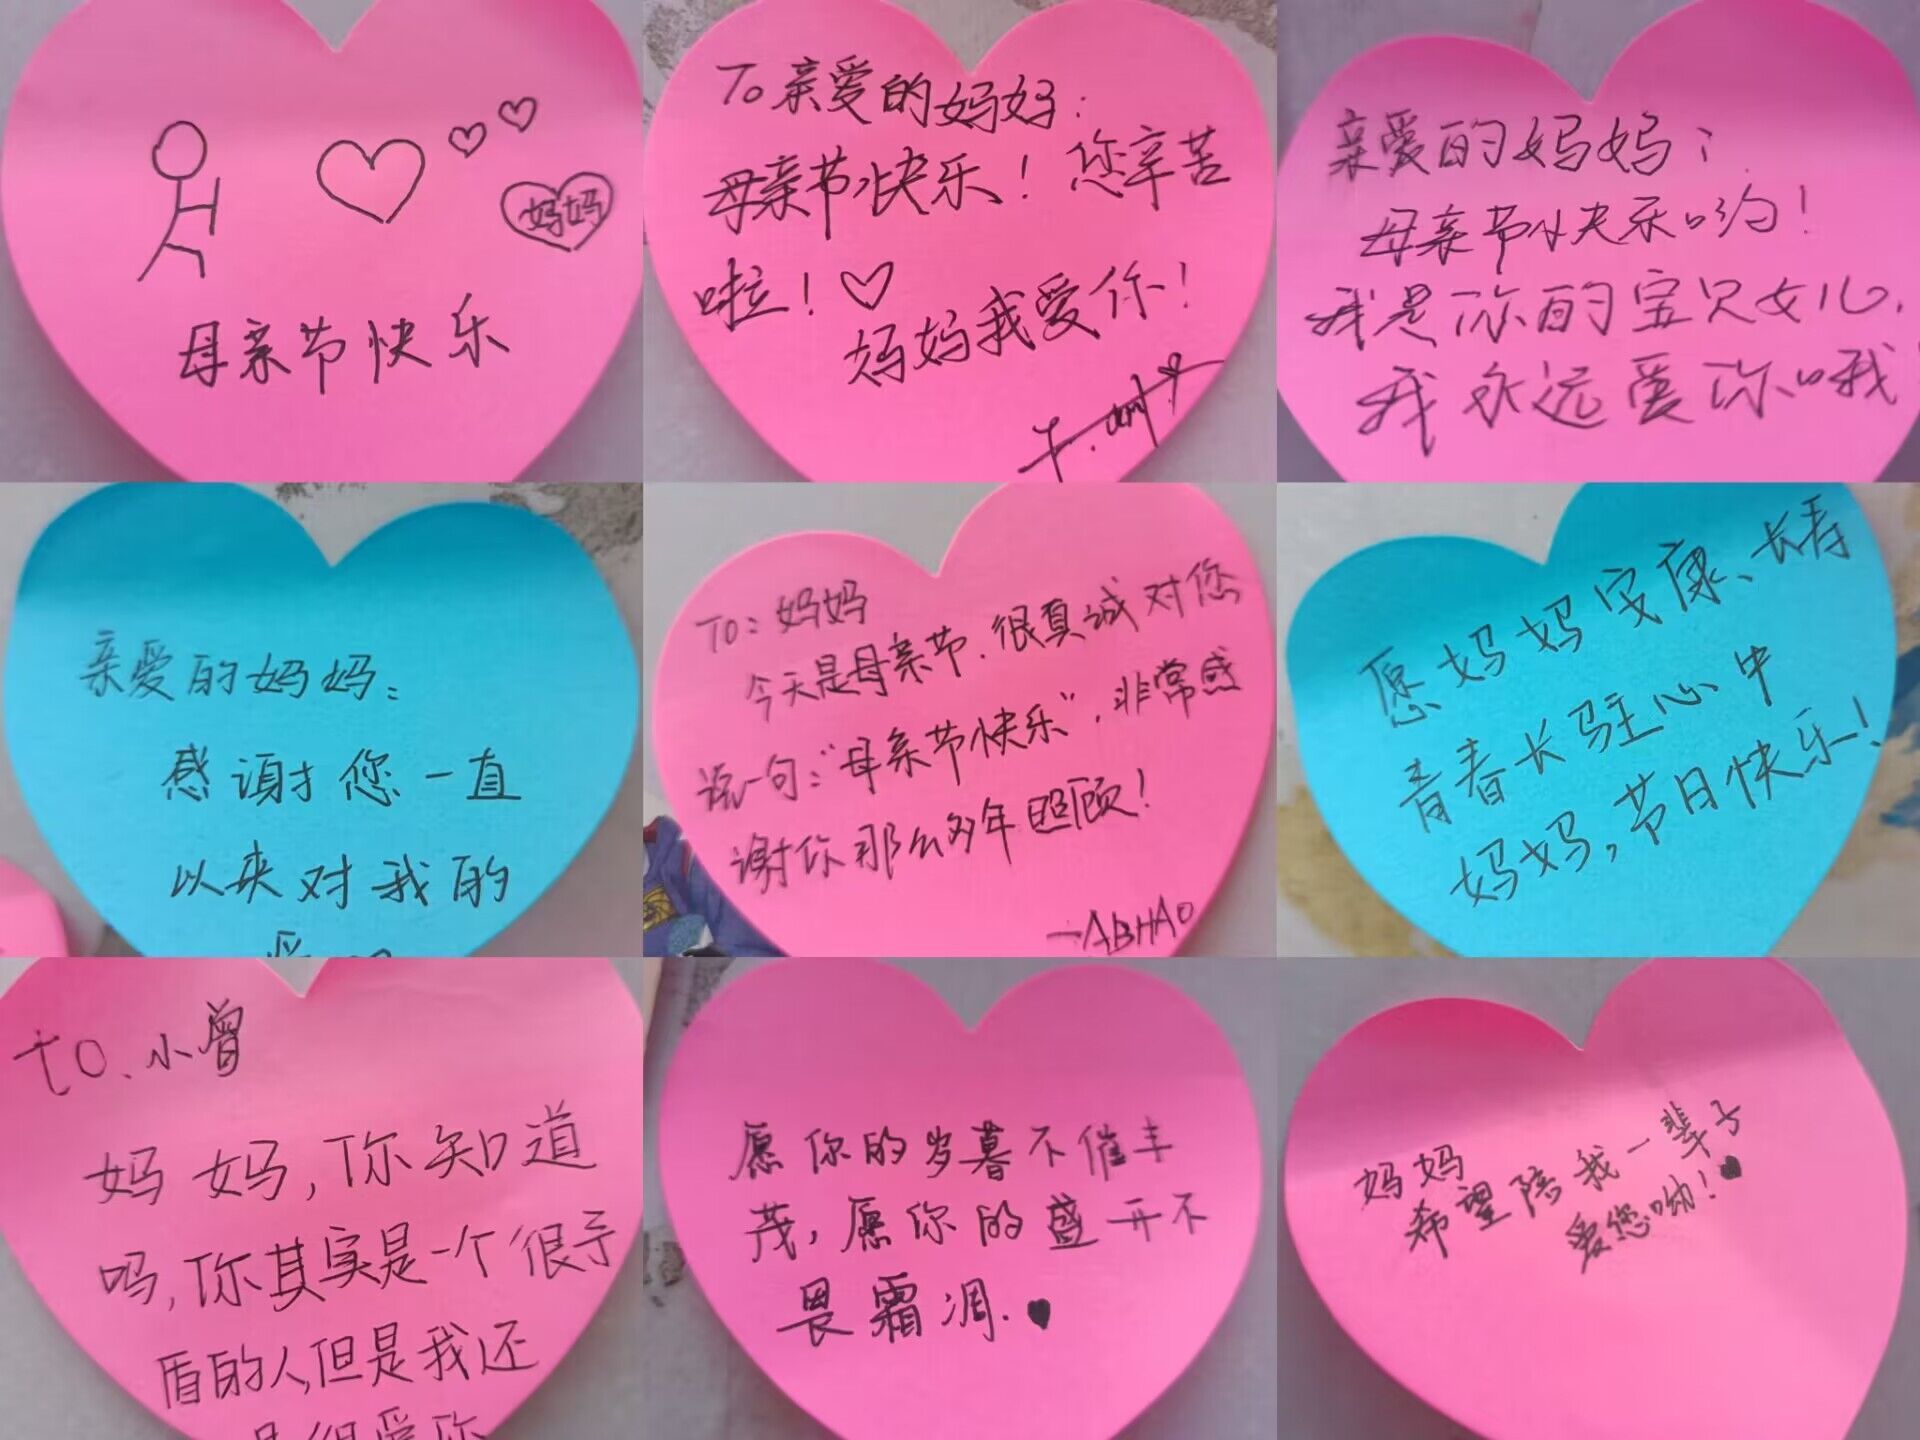 妈妈
母亲节快乐
To 亲爱的妈妈:
母亲节快乐!您辛苦
啦!♡
妈妈我爱你!
亲爱的妈妈:
母亲节快乐哟!
我是你的宝贝女儿,
我永远爱你哦
亲爱的妈妈:
感谢您一直
以来对我的
TO: 妈妈
今天是母亲节,很真诚对您
说一句:“母亲节快乐”,非常感
谢你那么多年照顾!
—ABHAO
愿妈妈安康、长寿
青春长驻心中
妈妈,节日快乐!
to、小曾
妈妈,你知道
吗,你其实是一个很矛
盾的人,但是我还
是很爱你
愿你的岁暮不催丰
茂,愿你的盛开不
畏霜凋.♥
妈妈
希望陪我一辈子
爱您呦!♥